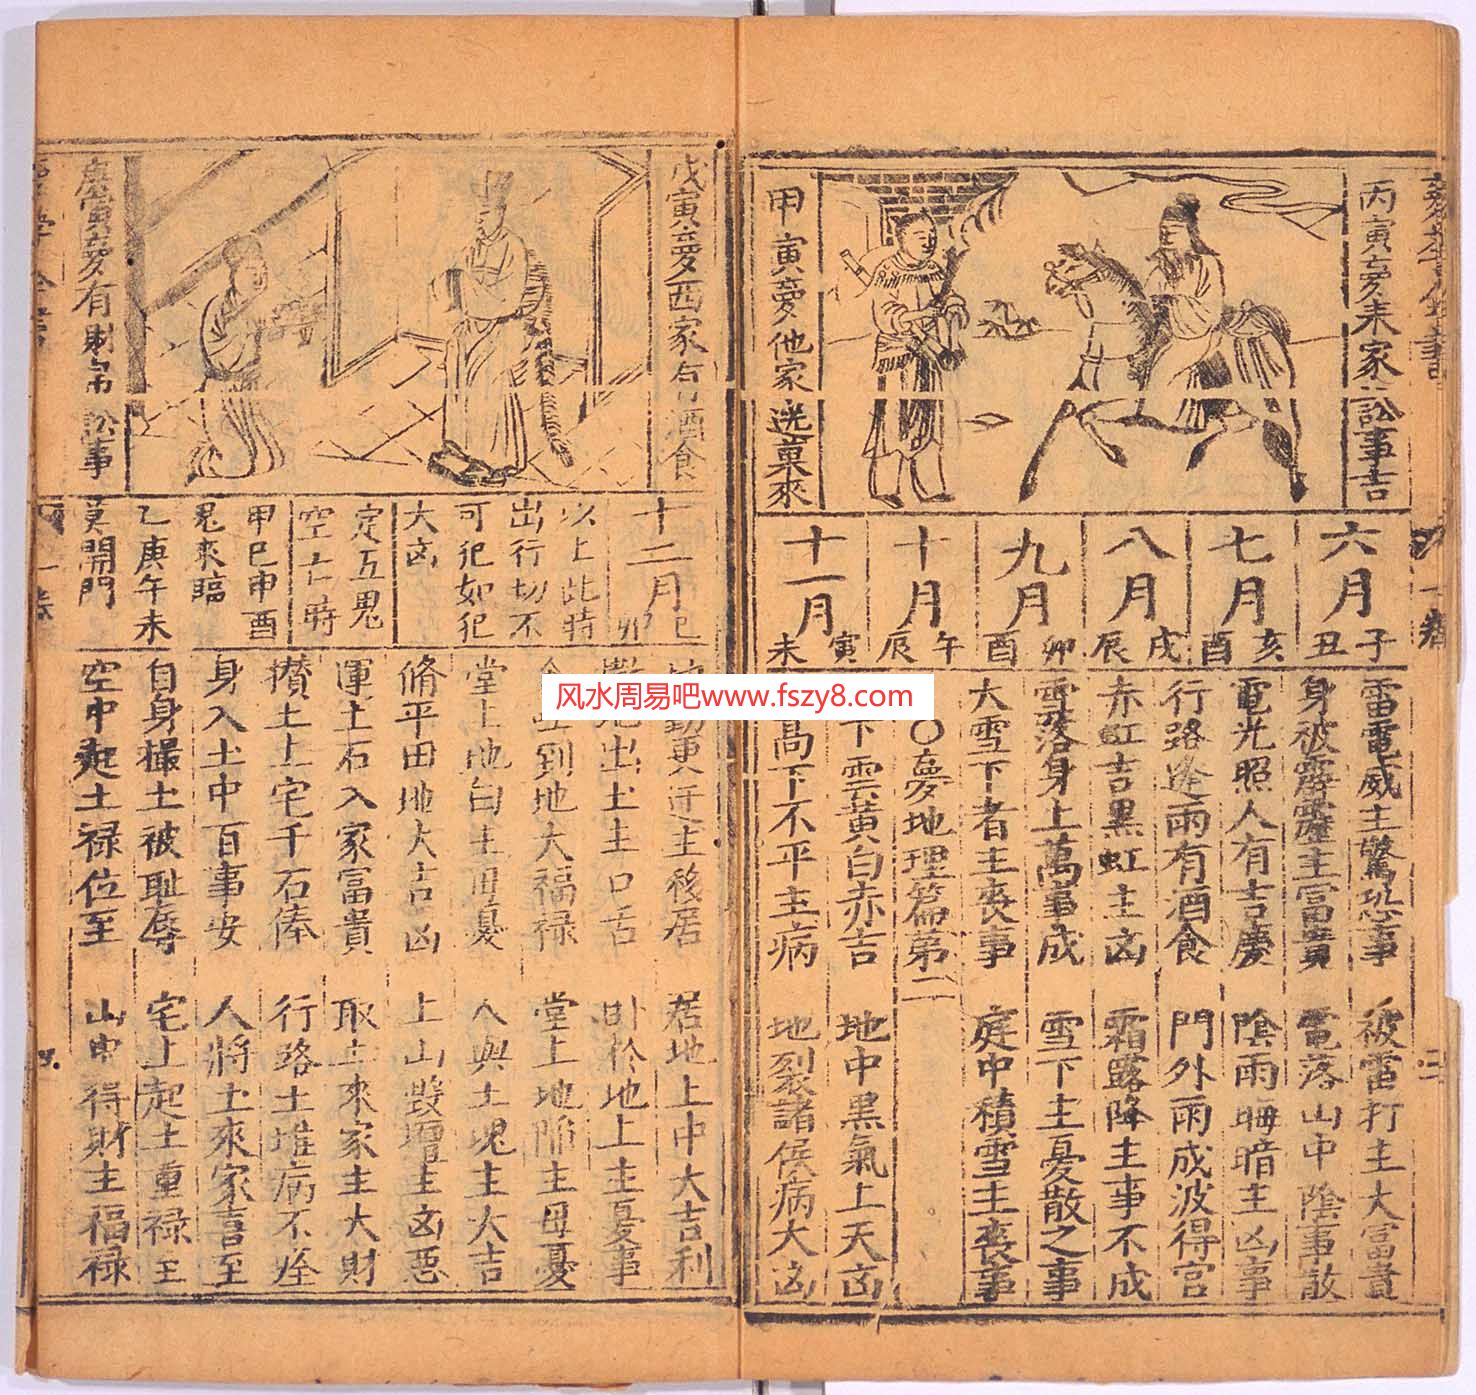 丙寅夢來家訟事吉
甲寅夢他家送菓來
六月
子丑
七月
亥酉
八月
戌辰
九月
卯酉
十月
午辰
十一月
寅未
雷電威主驚恐事
被雷打主大富貴
身被霹靂主富貴
電落山中陰事散
電光照人有吉慶
陰雨晦暗主凶事
行路逢雨有酒食
門外雨成波得官
赤虹吉黑虹主凶
霜露降主事不成
雪落身上萬事成
雪下主憂散之事
大雪下者主喪事
庭中積雪主喪事
○夢地理篇第二
下雲黃白赤吉
地中黑氣上天凶
高下不平主病
地裂諸侯病大凶
戊寅夢西家有酒食
庚寅夢有財帛訟事
十二月
巳卯
以上此時
出行切不
可犯如犯
大凶
定五鬼
空亡時
甲巳申酉
鬼來臨
乙庚午未
莫開門
動更迁主移居
居地上中大吉利
出土主口舌
卧於地上主憂事
到地大福禄
堂上地陷主母憂
堂上地白主母憂
人與土塊主大吉
脩平田地大吉凶
上山毀壇主凶惡
運土石入家富貴
取土來家主大財
攢土上宅千石俸
行路土堆病不痊
身入土中百事安
人將土來家喜至
自身撮土被耻辱
宅上起土重禄至
空中起土禄位至
山中得財主福禄
风水周易吧www.fszy8.com